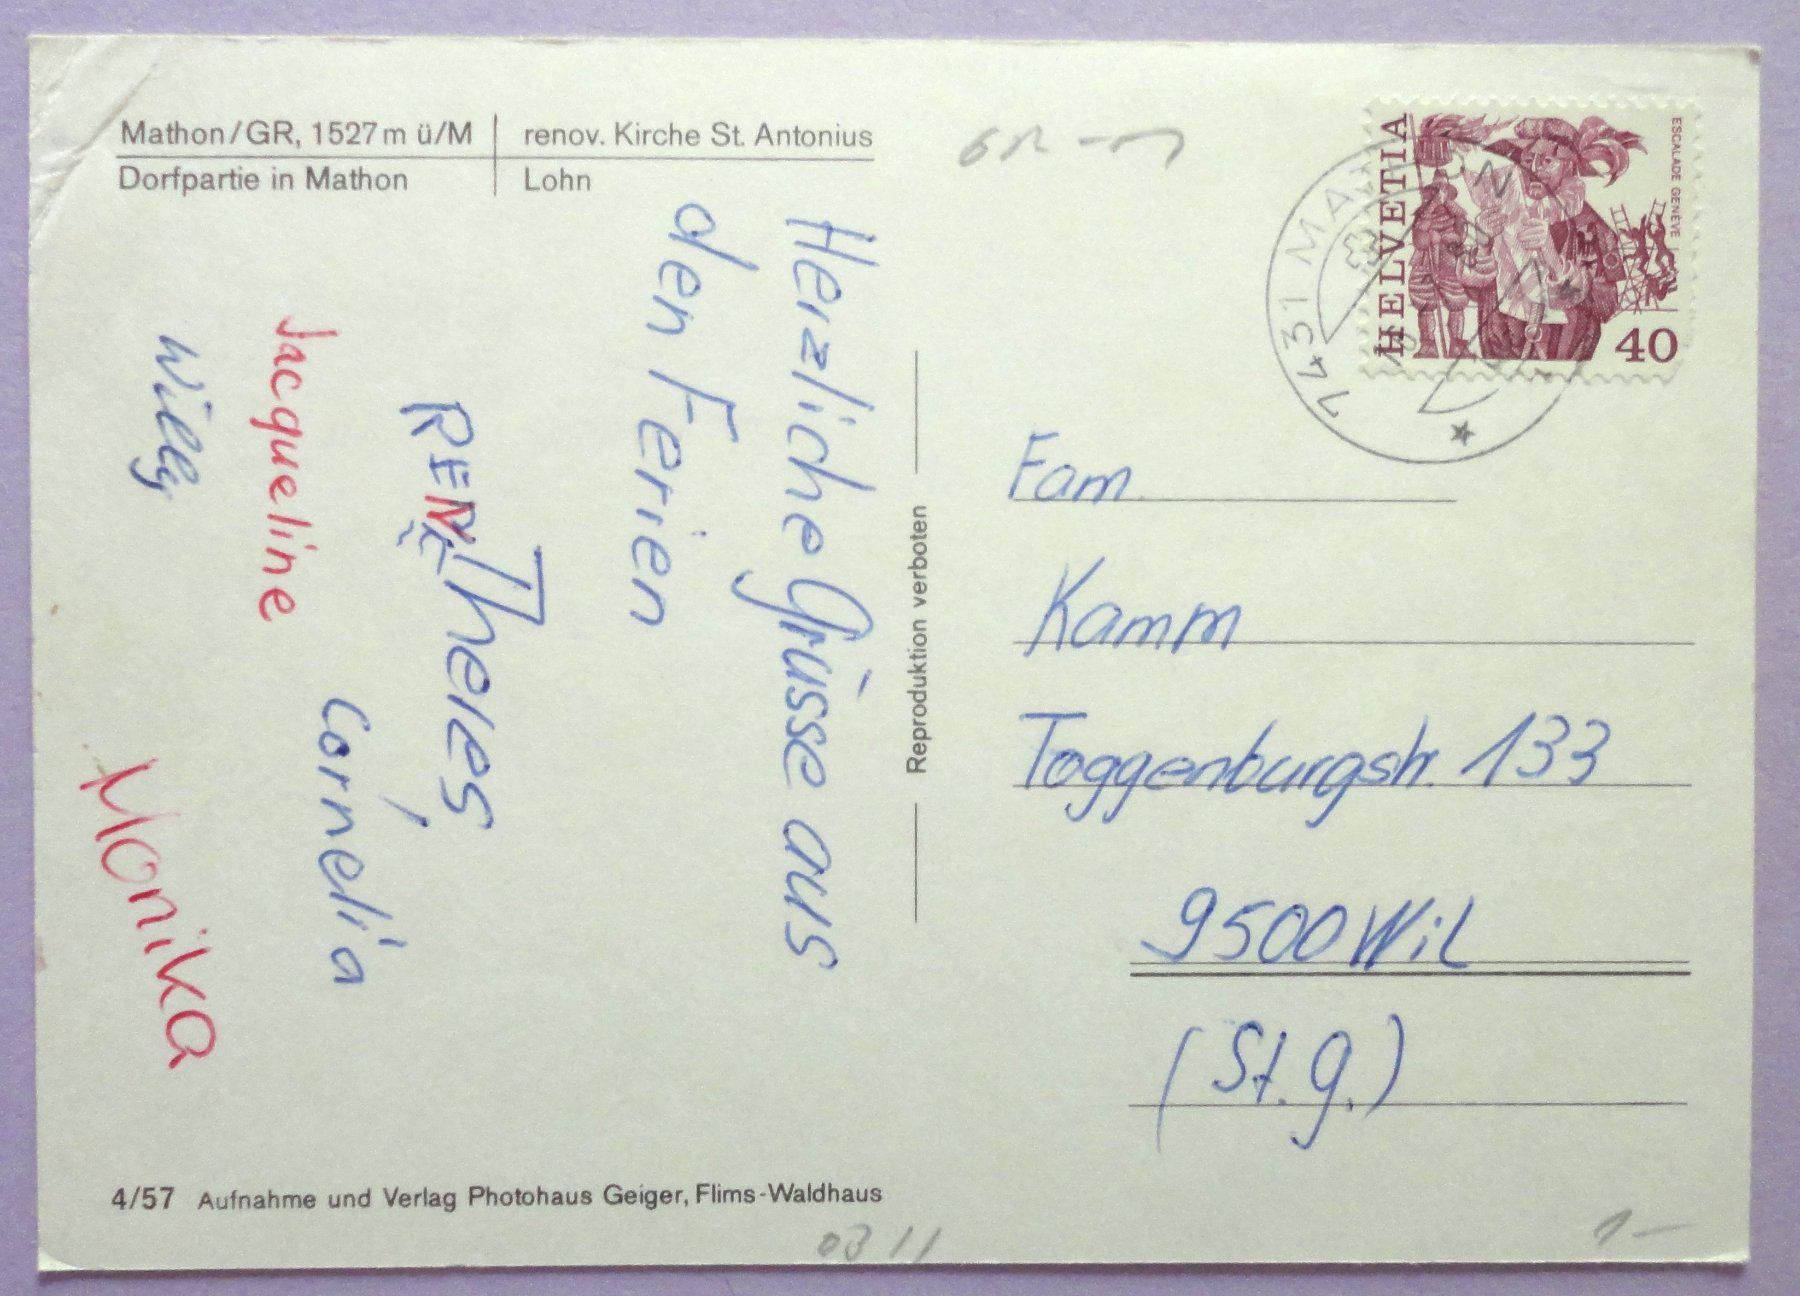 Mathon/GR, 1527m ü/M
Dorfpartie in Mathon
renov. Kirche St. Antonius
Lohn
Herzliche Grüsse aus
den Ferien
Theres
RENÉ
Cornelia
Jacqueline
Willy
Monika
Reproduktion verboten
HELVETIA
ESCALADE GENÈVE
40
7431 MA
Fam.
Kamm
Toggenburgstr. 133
9500 Wil
(St. g.)
4/57 Aufnahme und Verlag Photohaus Geiger, Flims-Waldhaus
03 11
1-